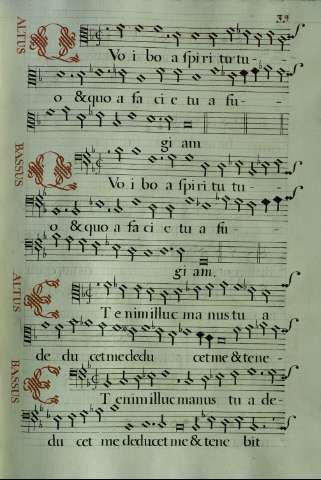 39
ALTUS
Q Vo i bo a ſpiri tu tu -
o & quo a fa ci e tu a fu -
giam
BASSUS
Q Vo i bo a ſpiri tu tu -
o & quo a fa ci e tu a fu -
giam.
ALTUS
E Tenim illuc ma nus tu a
de du cet me dedu cet me & tene -
BASSUS
E Tenim illuc manus tu a de -
du cet me deducet me & tene bit